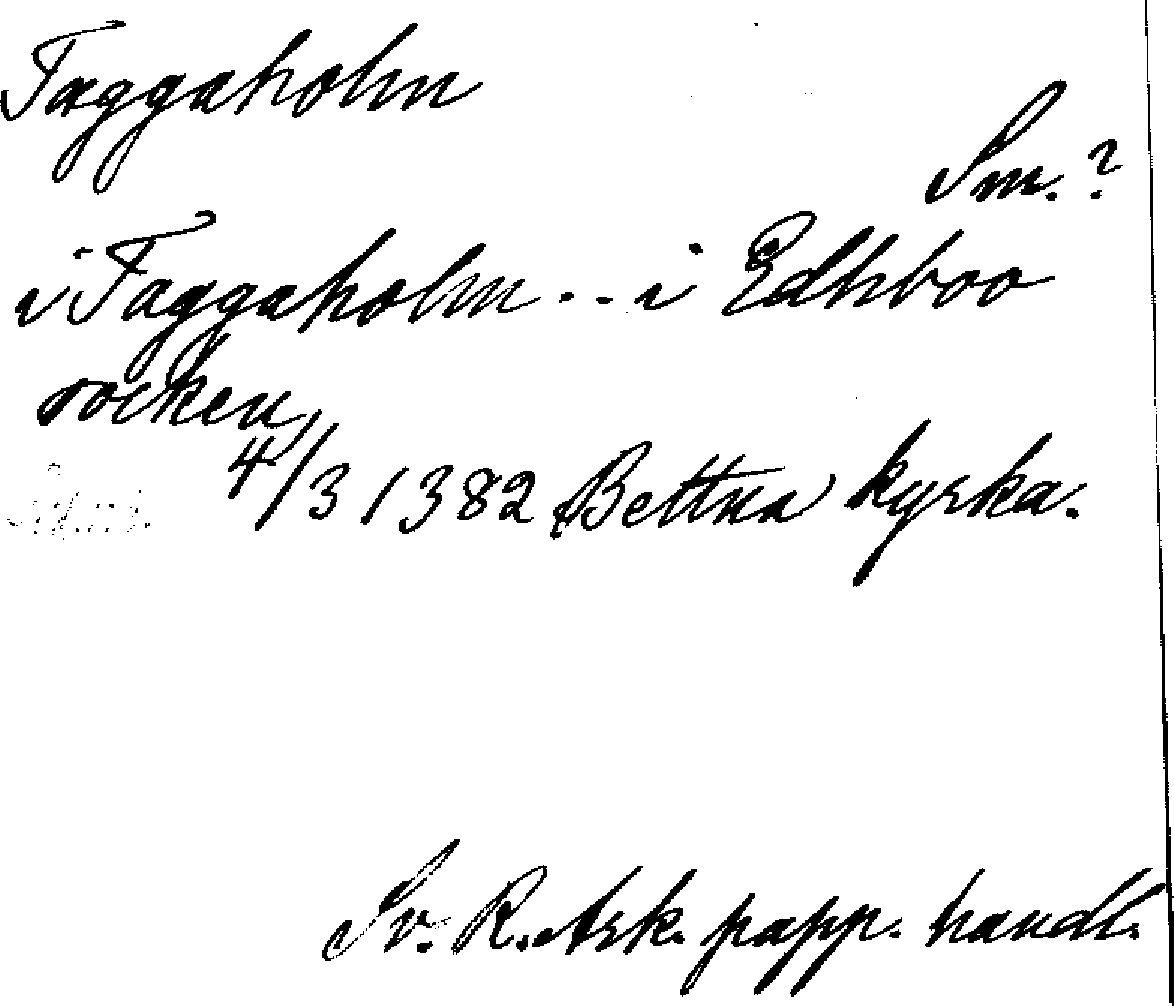 Taggaholm
Sm.?
i Taggaholm... i Edhboo
socken,
4/3 1382 Bettna kyrka.
Sv. R. Ark. papp. handl.